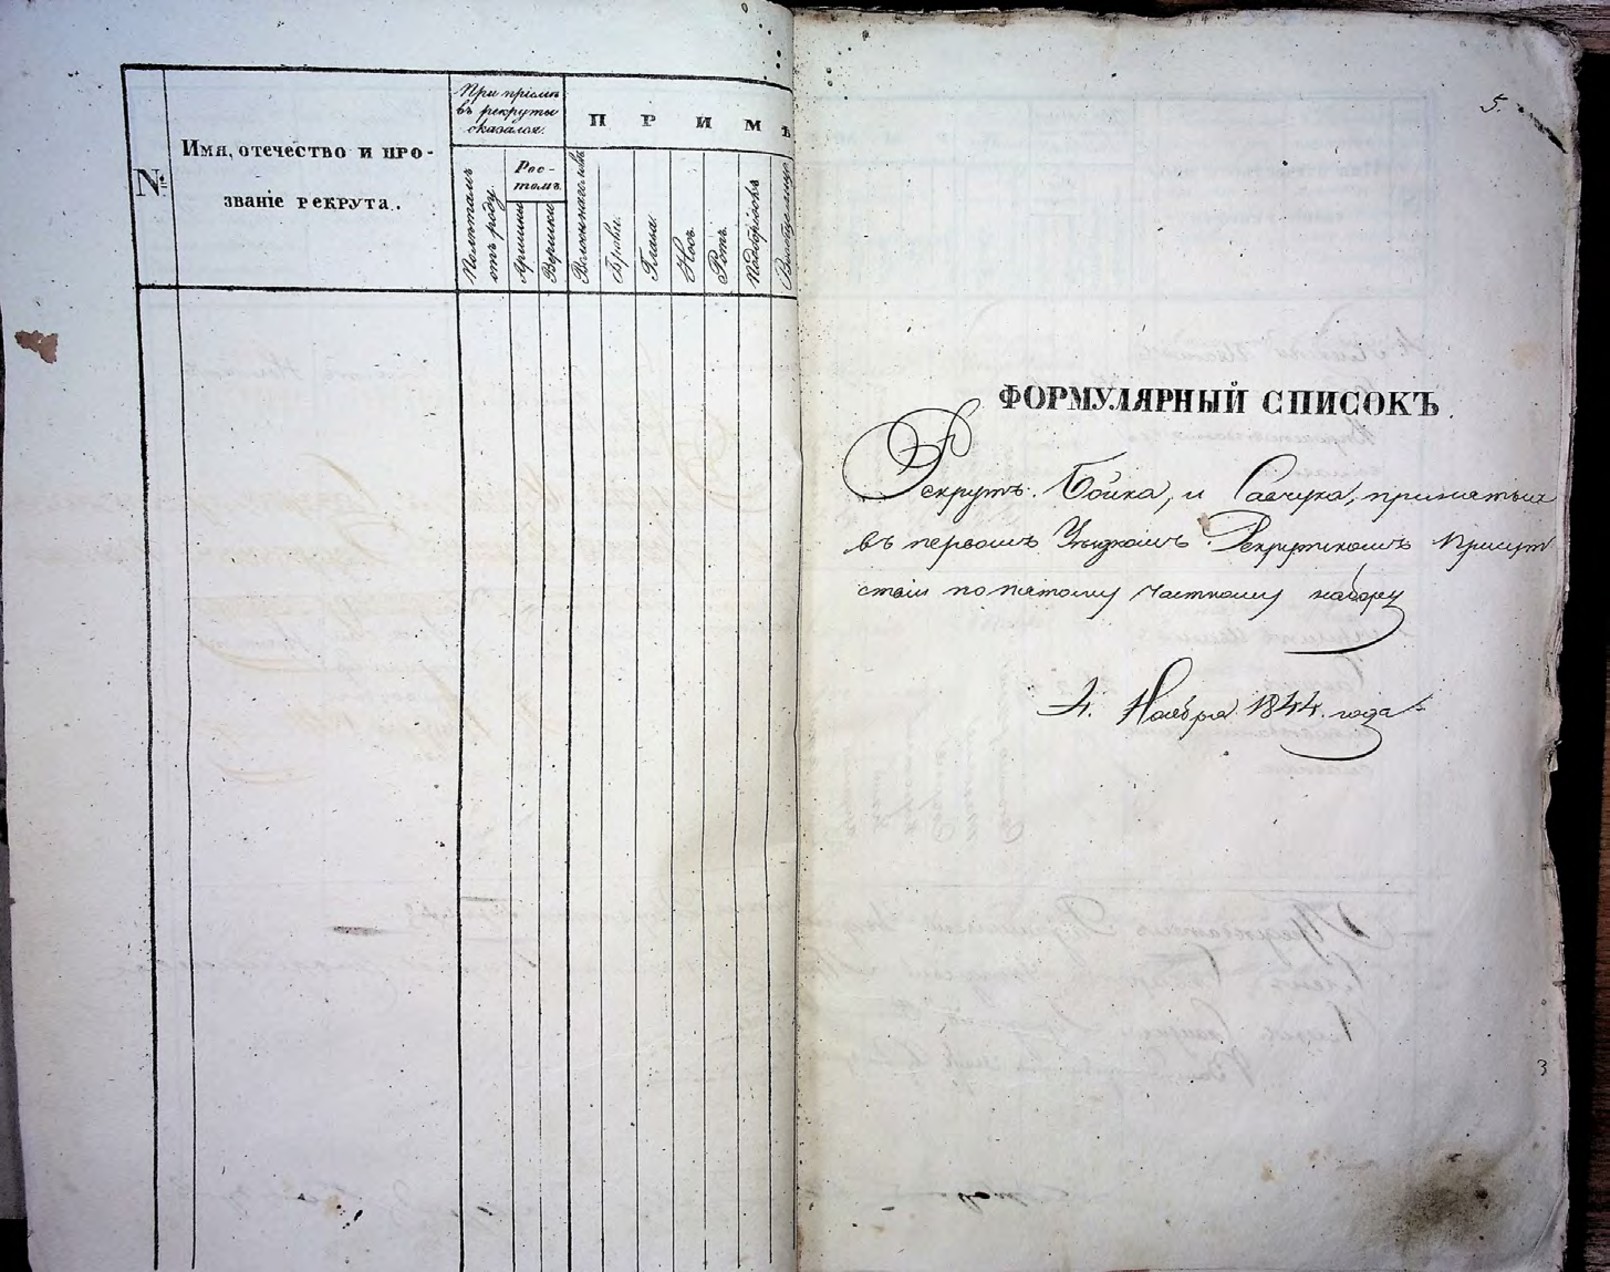 №
Имя, отечество и про-
званіе рекрута.
При пріемѣ
въ рекруты
оказался.
Полѣтамъ
отъ роду.
Рос-
томъ.
Аршины
Вершки
П Р И М Ѣ
Брови.
Глаза.
Носъ.
Ротъ.
Подбородокъ
5.
ФОРМУЛЯРНЫЙ СПИСОКЪ.
Рекрутъ: Бойка, и Савчука, принятыхъ
въ первомъ Уѣздномъ Рекрутскомъ Присут
ствіи по пятому частному набору
4. Ноября 1844. года
3